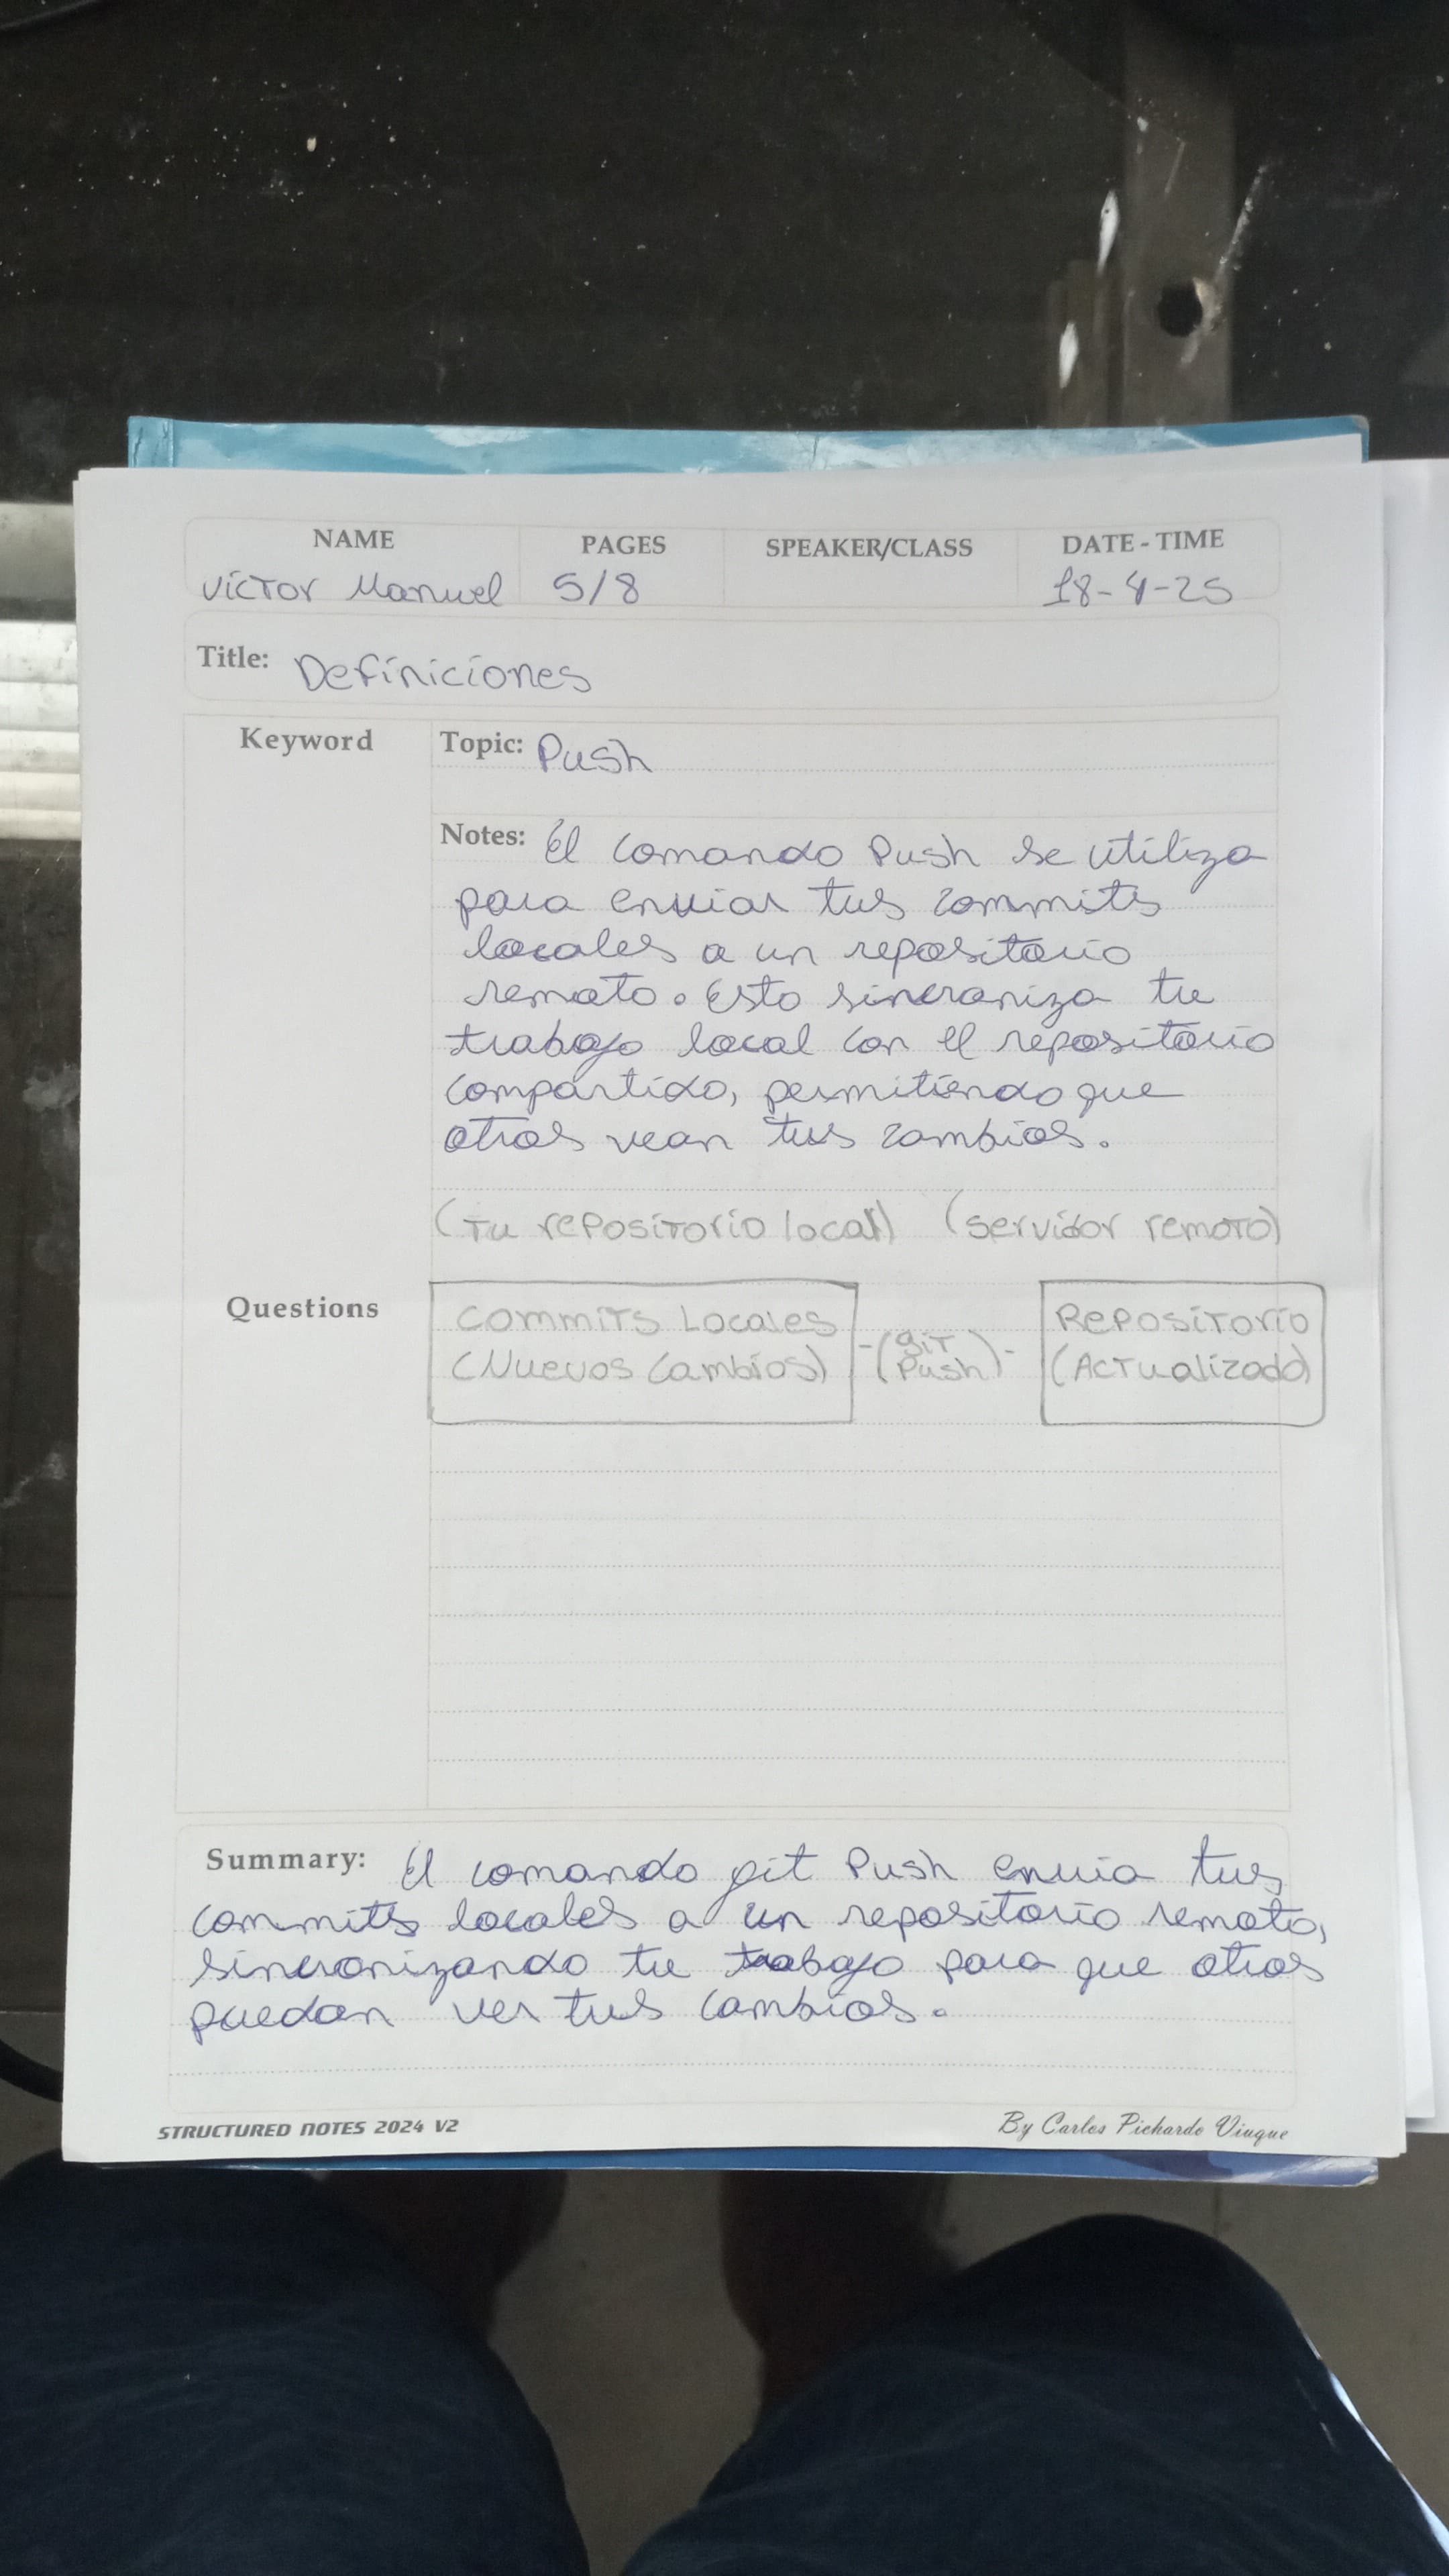 NAME PAGES SPEAKER/CLASS DATE - TIME
Víctor Manuel 5/8 18-4-25
Title: Definiciones
Keyword Topic: Push
Notes: El comando Push se utiliza
para enviar tus commits
locales a un repositorio
remoto. Esto sincroniza tu
trabajo local con el repositorio
compartido, permitiendo que
otros vean tus cambios.
(Tu repositorio local) (servidor remoto)
Questions
Commits Locales
(Nuevos Cambios)
-(git Push)-
Repositorio
(Actualizado)
Summary: El comando git Push envia tus
commits locales a un repositorio remoto,
sincronizando tu trabajo para que otros
puedan ver tus cambios.
STRUCTURED NOTES 2024 V2 By Carlos Pichardo Viuque